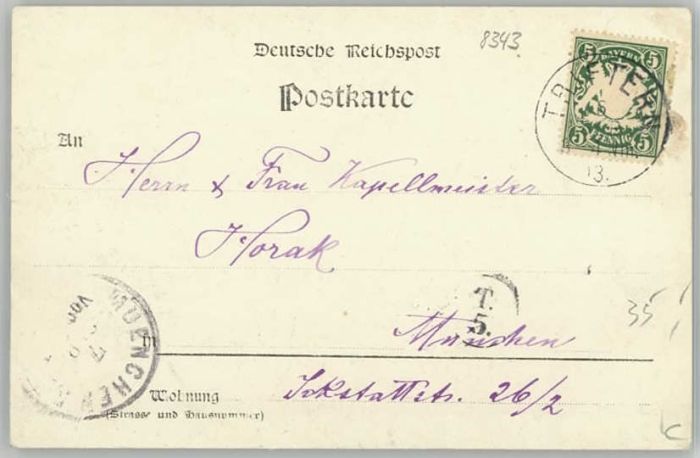 8343
Deutsche Reichspost
Postkarte
5 BAYERN 5
5 PFENNIG 5
An
Herrn & Frau Kapellmeister
Horak
T.
5.
35
MUENCHEN
in München
Wohnung
(Strasse und Hausnummer)
26/2